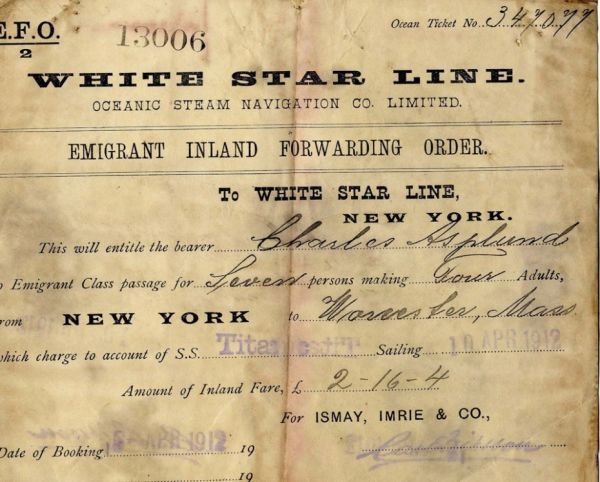 E.F.O.
2
13006
Ocean Ticket No. 347077
WHITE STAR LINE.
OCEANIC STEAM NAVIGATION CO. LIMITED.
EMIGRANT INLAND FORWARDING ORDER.
To WHITE STAR LINE,
NEW YORK.
This will entitle the bearer Charles Asplund
o Emigrant Class passage for Seven persons making Four Adults,
from NEW YORK to Worcester, Mass
which charge to account of S.S. Titanic Sailing 10 APR 1912
Amount of Inland Fare, £ 2-16-4
For ISMAY, IMRIE & CO.,
Date of Booking APR 1912 19
19